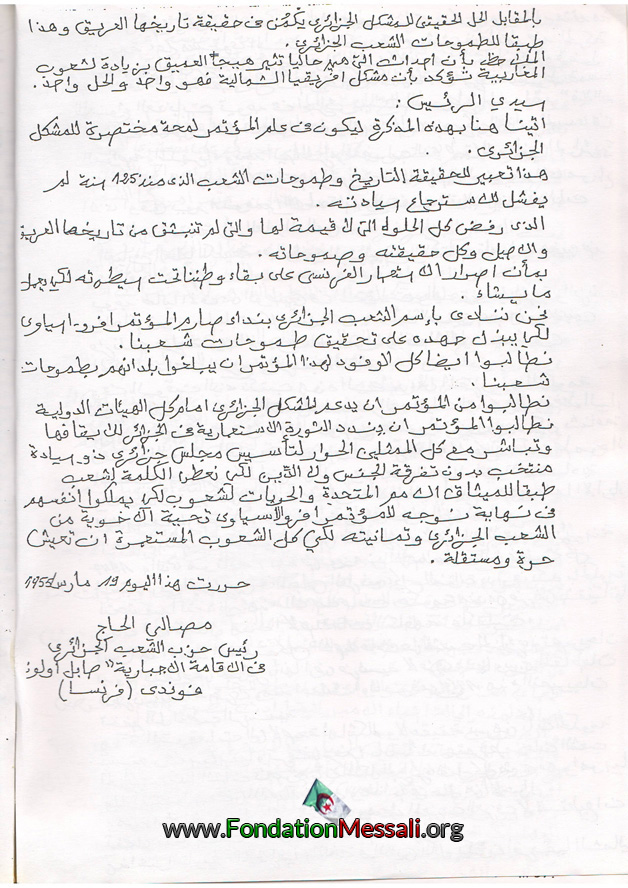 بالمقابل الحل الحقيقي للمشكل الجزائري يكمُن في حقيقة تاريخها العريق وهذا
طبقا للطموحات الشعب الجزائري.
الملاحظ بأن أحداث التي هي حاليا تثير هيجا العميق بزيادة لشعوب
المغاربية تؤكد بأن مشكل افريقيا الشمالية فهو واحد والحل واحد.
سيدي الرئيس:
اتينا هنا بهذه المذكرة ليكون في علم المؤتمر لمحة مختصرة للمشكل
الجزائري.
هذا تعبير للحقيقة التاريخ وطموحات الشعب الذي منذ 125 سنة لم
يفشل لاسترجاع سيادته.
الذي رفض كل الحلول التي لا قيمة لها والتي لم تنبثق من تاريخها العريق
والاصيل وكل حقيقته وصموحاته.
بمأن اصرار الاستعمار الفرنسي على بقاء وطننا تحت سيطرته لكي يعمل
ما يشاء.
نحن ننادي بإسم الشعب الجزائري بنداء صارم المؤتمر افرو-اسياوي
لكي يبذل جهده على تحقيق طموحات شعبنا.
نطالبوا ايضا كل الوفود لهذا المؤتمر ان يبلغوا بلدانهم بطموحات
شعبنا.
نطالبوا من المؤتمر ان يدعم المشكل الجزائري امام كل الهيئات الدولية
نطالبوا المؤتمر ان يندد الثورة الاستعمارية في الجزائر لايقافها
وتباشر مع كل الممثلين الحوار لتأسيس مجلس جزائري ذو سيادة
منتخب بدون تفرقة الجنس ولا الدين لكي نعطي الكلمة لشعب
طبقا للميثاق الامم المتحدة والحريات لشعوب لكي يملكوا انفسهم
في نهاية نوجه للمؤتمر افرو الأسياوي تحية الاخوية من
الشعب الجزائري وتمانيته لكي كل الشعوب المستعمرة ان تعيش
حرة ومستقلة.
حررت هذا اليوم 19 مارس
مصالي الحاج
رئيس حزب الشعب الجزائري
في الاقامة الاجبارية "صابل اولو:
فوندي (فرنسا)
www.FondationMessali.org